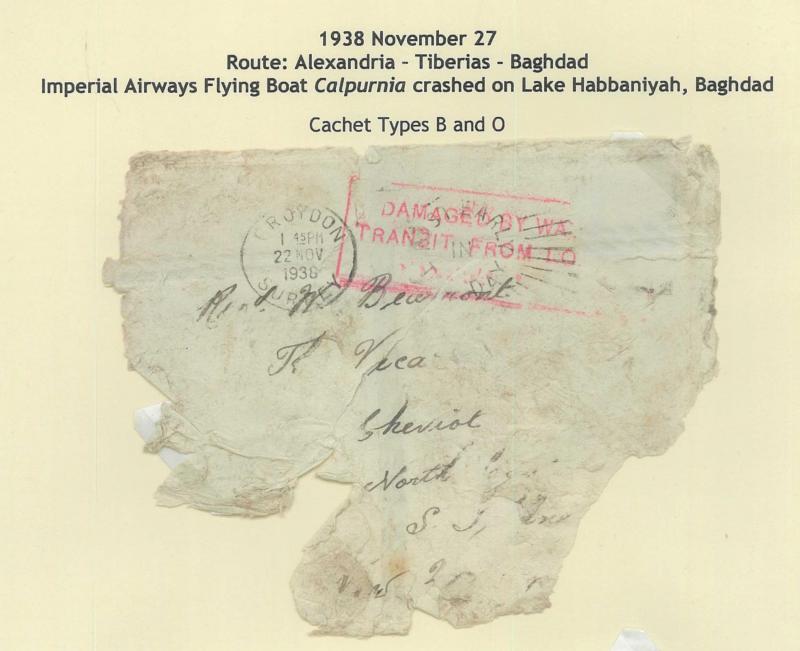 1938 November 27
Route: Alexandria - Tiberias - Baghdad
Imperial Airways Flying Boat Calpurnia crashed on Lake Habbaniyah, Baghdad
Cachet Types B and O
CROYDON
1 45PM
22 NOV
1938
SURREY
DAMAGED BY WA
TRANSIT FROM LO
IN
Revd. W. Beaumont
Th Vica
Cheviot
North
S. I.
New